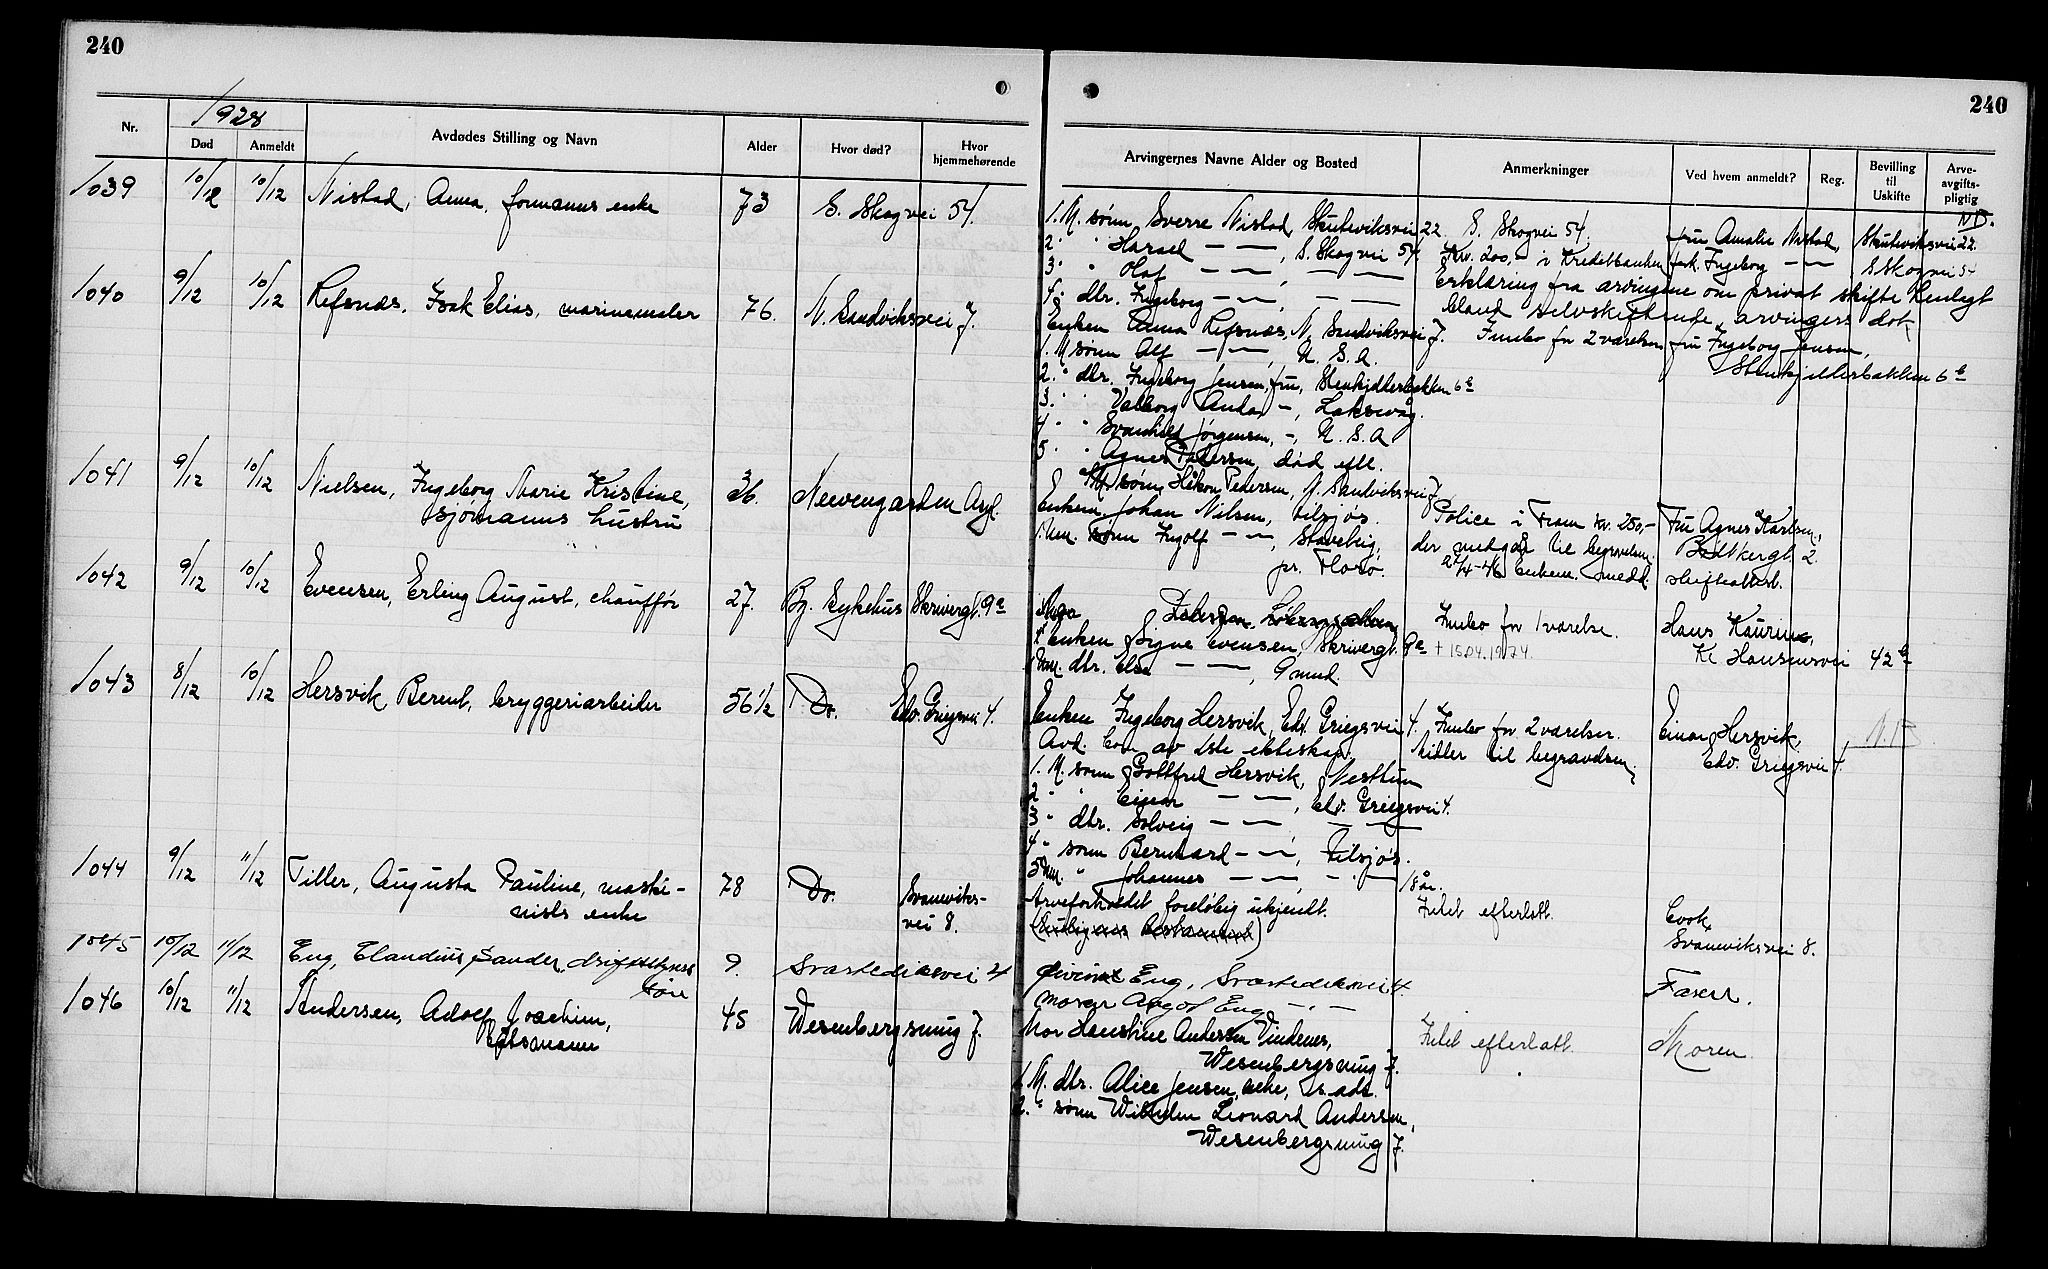 240
240
1928
Nr.
Død
Anmeldt
Avdødes Stilling og Navn
Alder
Hvor død?
Hvor hjemmehørende
Arvingernes Navne Alder og Bosted
Anmerkninger
Ved hvem anmeldt?
Reg.
Bevilling til Uskifte
Arve-avgifts-pligtig
1039 10/12 10/12 Nistad, Anna, formanns enke 73 S. Skogvei 54.
1. M. sønn Sverre Nistad, Skuteviksvei 22. S. Skogvei 54. fru Amalie Nistad, Skuteviksvei 22.
2. " Harald — — , S. Skogvei 54. Kr. 200,- i Kreditbanken frk. Ingeborg — — S. Skogvei 54
3. " Olaf — — , — — Erklæring fra arvingene om privat skifte henlagt
4. " dtr. Ingeborg — — , — — bland selvskiftende arvingers dok
1040 9/12 10/12 Refsnæs, Isak Elias, marinemaler 76. N. Sandviksvei 7.
Enken Anna Refsnæs, N. Sandviksvei 7. Innbo for 2 værelser fru Ingeborg Jensen,
1. M sønn Alf — — , U. S. A. Stenkjellerbakken 6 b
2. " dtr. Ingeborg Jensen, fru, Stenkjellerbakken 6 b
3. " " Valborg — , Laksevåg.
4. " " Svanhild Jørgensen, -, U. S. A
5. " " Agnes Pedersen, død eftl.
M. sønn Håkon Pedersen, N. Sandviksvei 7
1041 9/12 10/12 Nielsen, Ingeborg Marie Kristine, 36. Neevengarden Asyl.
sjømanns hustru
Enkem. Johan Nilsen, tilsjøs. Police i Fram kr. 250,- Fru Agnes Karlsen,
1. Um. sønn Ingolf — — , Stavang, der medgår til begravelsen. Bødkergt. 2.
pr. Florø. Enkem. medd. skifteattest.
1042 9/12 10/12 Evensen, Erling August, chauffør 27. Bg. Sykehus Skrivergt. 9 a
Enken Signe Evensen, Skrivergt. 9 a + 15.04.1974. Innbo for 1 værelse. Hans Kaurin,
1 Um. dtr. Else — — , 9 mnd. Kr Hansensvei 42 b
1043 8/12 10/12 Hersvik, Berent, bryggeriarbeider 56 1/2 Do. Edv. Griegsvei 4.
Enken Ingeborg Hersvik, Edv. Griegsvei 4. Innbo for 2 værelser. Einar Hersvik,
Avd. barn av 1ste ekteskap. Midler til begravelsen. Edv. Griegsvei 4.
1. M. sønn Gottfred Hersvik, Nesttun
2 " " Einar — — , Edv. Griegsvei 4.
3 " dtr. Solveig — — , — —
4 " sønn Bernhard — — , tilsjøs.
5 Um. " Johannes — — , — " — 18 år.
1044 9/12 11/12 Tiller, Augusta Pauline, maski- 78 Do. Svaneviks-
nists enke vei 8.
Arveforholdet foreløbig ukjendt. Intet efterlatt. Cook,
Svaneviksvei 8.
1045 10/12 11/12 Eng, Claudius Sander, 9. Svartediksvei 4
Eng, Svartediksvei 4. Faren.
moren Eng — " —
1046 10/12 11/12 Andersen, Adolf Joachim, 45 Wesenbergsmug 7.
Mor Hanstine Andersen Vindenes, Intet efterlatt. Moren.
Wesenbergsmug 7.
1. M. dtr. Alice Jensen, enke, s. ads.
2. " sønn Wilhelm Leonard Andersen,
Wesenbergsmug 7.